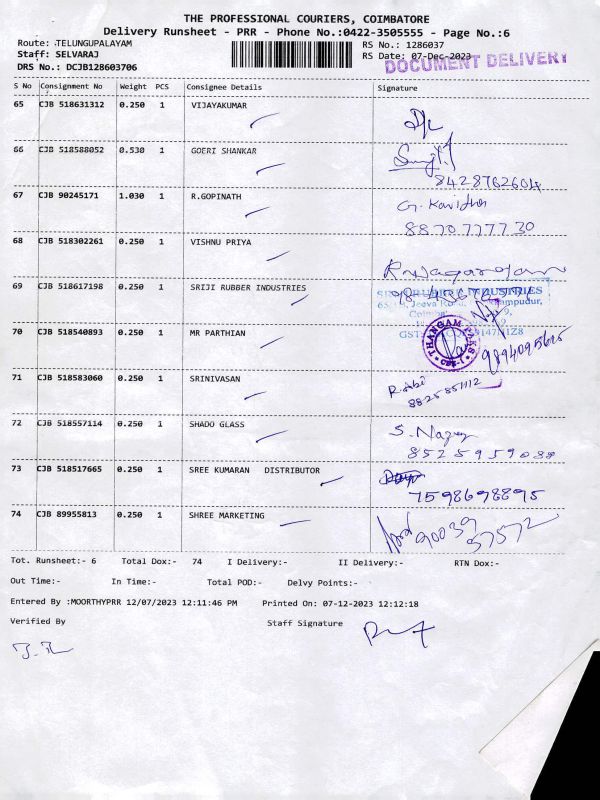 THE PROFESSIONAL COURIERS, COIMBATORE
Delivery Runsheet - PRR - Phone No.:0422-3505555 - Page No.:6
Route: TELUNGUPALAYAM RS No.: 1286037
Staff: SELVARAJ RS Date: 07-Dec-2023
DOCUMENT DELIVERY
DRS No.: DCJB128603706
S No Consignment No Weight PCS Consignee Details Signature
65 CJB 518631312 0.250 1 VIJAYAKUMAR
66 CJB 518588052 0.530 1 GOERI SHANKAR
8428762604
67 CJB 90245171 1.030 1 R.GOPINATH G. Kavidha
8870777730
68 CJB 518302261 0.250 1 VISHNU PRIYA
69 CJB 518617198 0.250 1 SRIJI RUBBER INDUSTRIES
70 CJB 518540893 0.250 1 MR PARTHIAN
THANGAM PARKS
9894095615
71 CJB 518583060 0.250 1 SRINIVASAN
8825851112
72 CJB 518557114 0.250 1 SHADO GLASS
8525959088
73 CJB 518517665 0.250 1 SREE KUMARAN DISTRIBUTOR
7598698895
74 CJB 89955813 0.250 1 SHREE MARKETING
90039
37572
Tot. Runsheet:- 6 Total Dox:- 74 I Delivery:- II Delivery:- RTN Dox:-
Out Time:- In Time:- Total POD:- Delvy Points:-
Entered By :MOORTHYPRR 12/07/2023 12:11:46 PM Printed On: 07-12-2023 12:12:18
Verified By Staff Signature